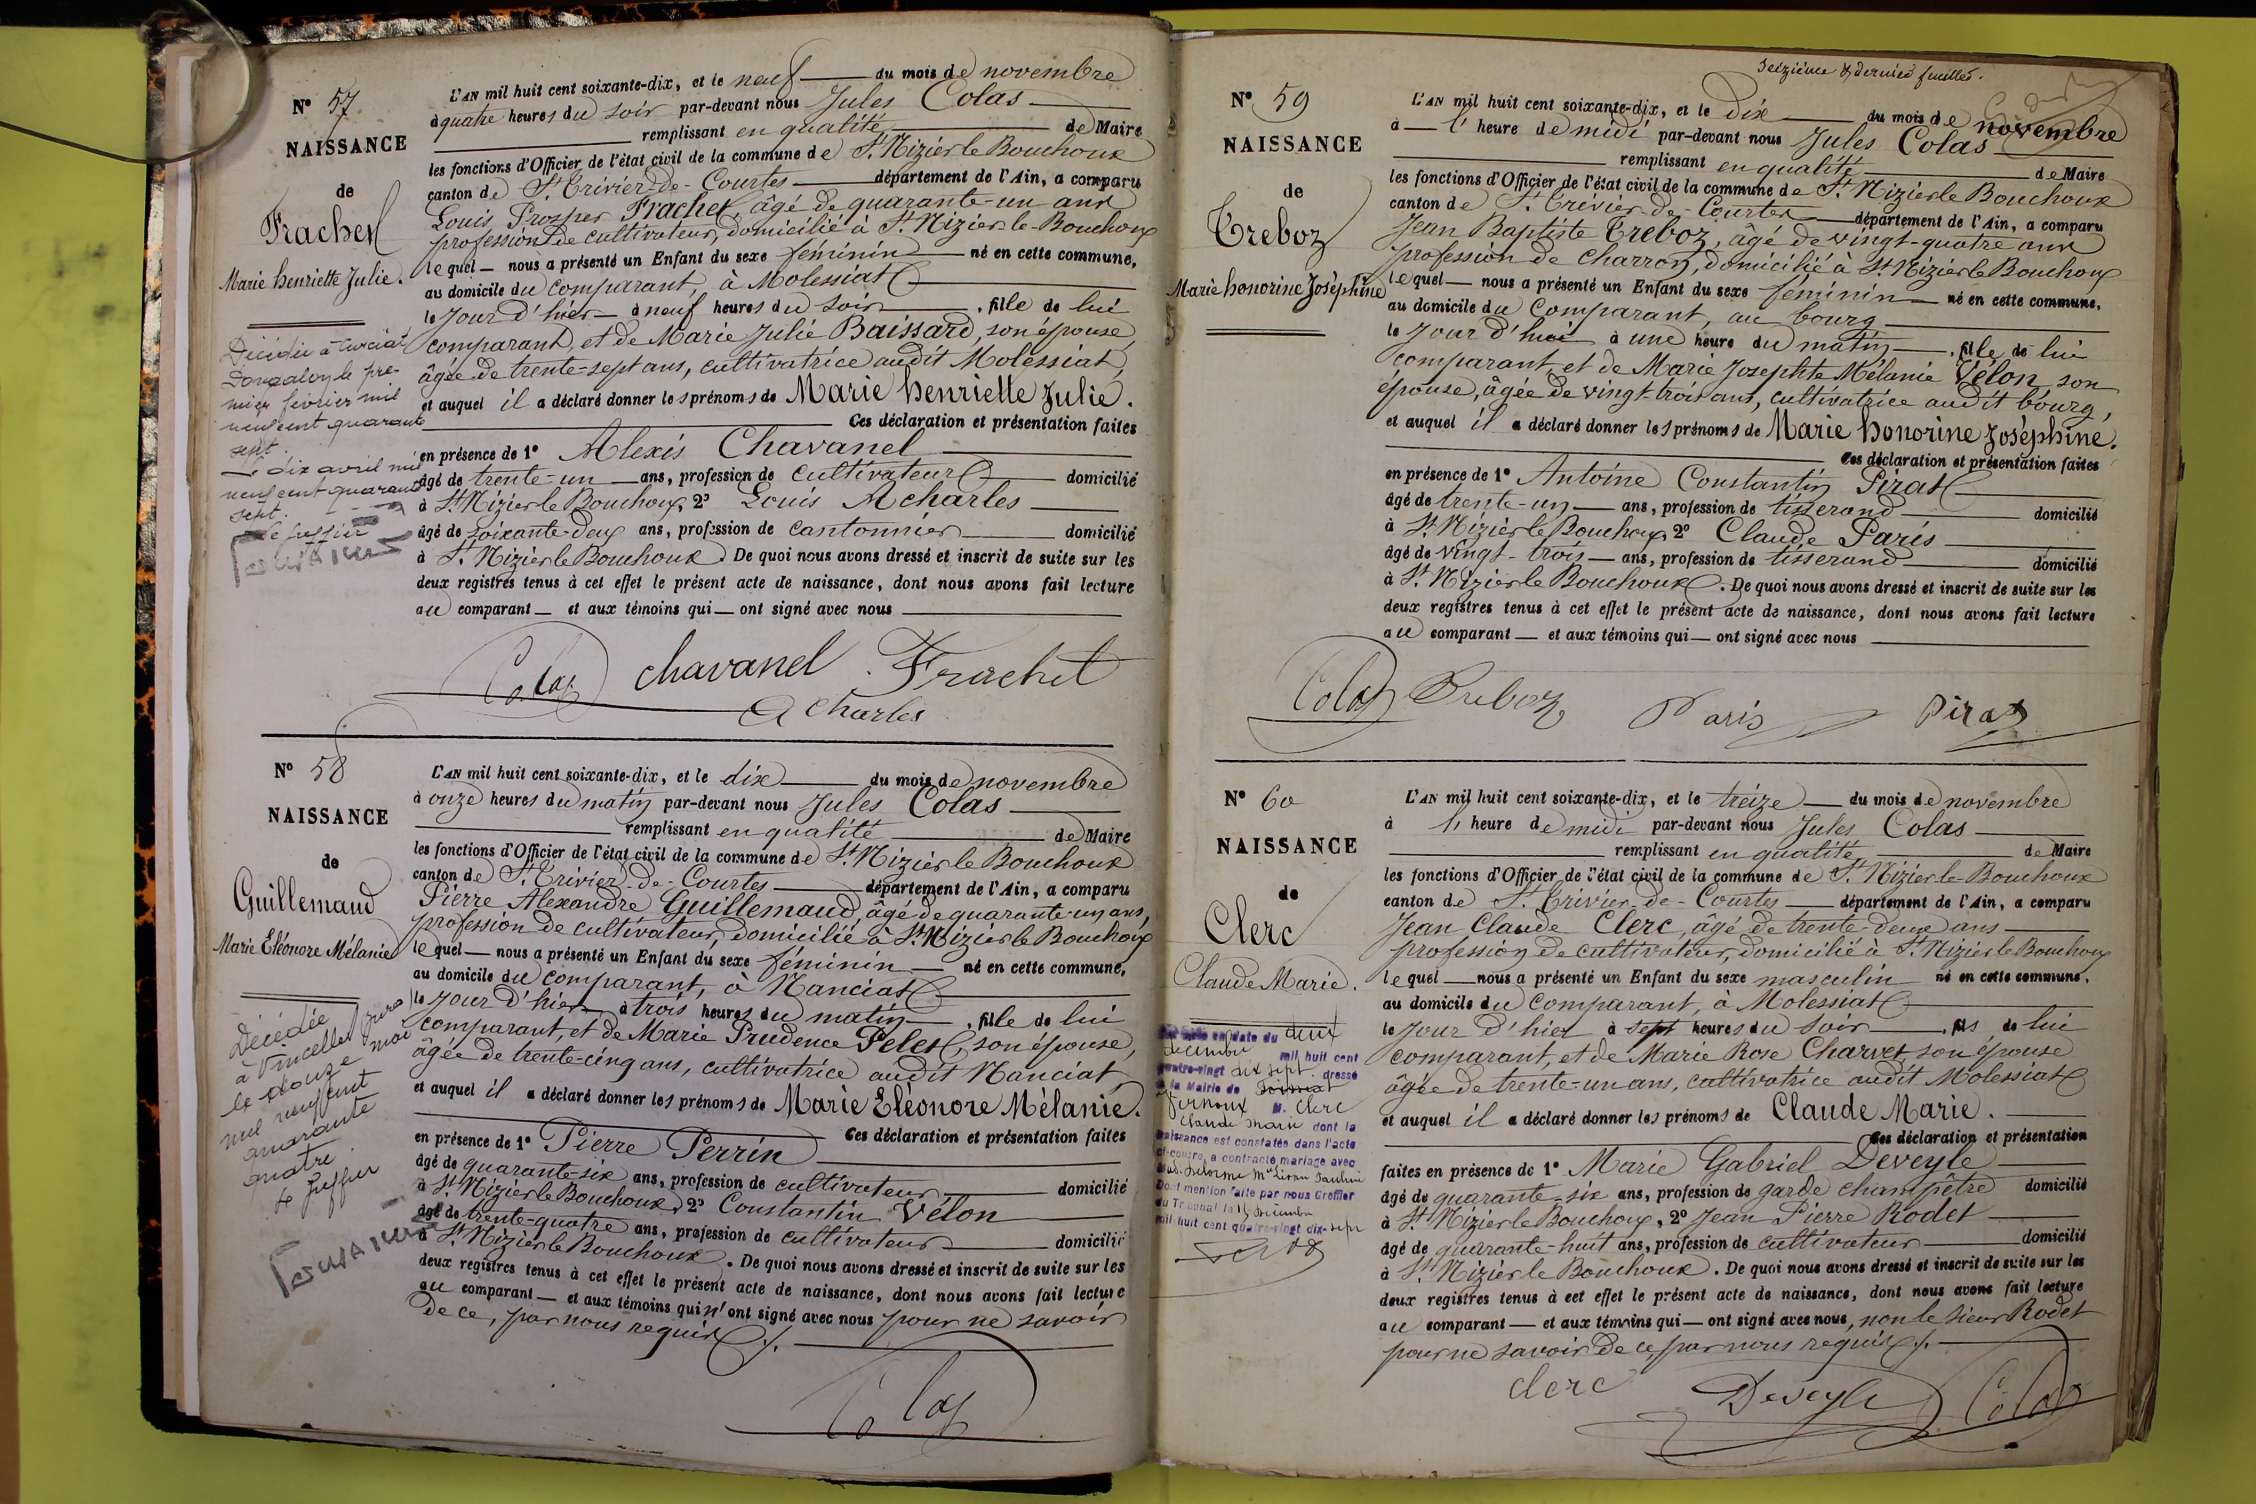 N° 57
NAISSANCE
de
Frachet
Marie henriette Julie.
Décédée à Curciat
Dongalon le pre-
mier février mil
neuf cent quarante
sept.
Le dix avril mil
neuf cent quarante
sept.
Le greffier
L'AN mil huit cent soixante-dix, et le neuf du mois de novembre
à quatre heures du soir par-devant nous Jules Colas
remplissant en qualité de Maire
les fonctions d'Officier de l'état civil de la commune de St. Nizier le Bouchoux
canton de St. Trivier-de-Courtes département de l'Ain, a comparu
Louis Prosper Frachet, âgé de quarante-un ans
profession de cultivateur, domicilié à St. Nizier-le-Bouchoux
lequel nous a présenté un Enfant du sexe féminin né en cette commune,
au domicile du comparant, à Molessiat
le jour d'hier à neuf heures du soir, fille de lui
comparant, et de Marie Julie Baissard, son épouse,
âgée de trente-sept ans, cultivatrice audit Molessiat,
et auquel il a déclaré donner les prénoms de Marie henriette Julie.
Ces déclaration et présentation faites
en présence de 1° Alexis Chavanel
âgé de trente-un ans, profession de cultivateur domicilié
à St. Nizier le Bouchoux, 2° Louis Acharles
âgé de soixante-deux ans, profession de cantonnier domicilié
à St. Nizier le Bouchoux. De quoi nous avons dressé et inscrit de suite sur les
deux registres tenus à cet effet le présent acte de naissance, dont nous avons fait lecture
au comparant et aux témoins qui ont signé avec nous
Colas chavanel Frachet
Acharles
N° 58
NAISSANCE
de
Guillemaud
Marie Eléonore Mélanie
Décédée
à Vincelles (Jura)
le douze mai
mil neuf cent
quarante
quatre.
Le greffier
L'AN mil huit cent soixante-dix, et le dix du mois de novembre
à onze heures du matin par-devant nous Jules Colas
remplissant en qualité de Maire
les fonctions d'Officier de l'état civil de la commune de St. Nizier le Bouchoux
canton de St. Trivier-de-Courtes département de l'Ain, a comparu
Pierre Alexandre Guillemaud, âgé de quarante-un ans,
profession de cultivateur, domicilié à St. Nizier le Bouchoux
lequel nous a présenté un Enfant du sexe féminin né en cette commune,
au domicile du comparant, à Nanciat
le jour d'hier à trois heures du matin, fille de lui
comparant, et de Marie Prudence Pelet, son épouse,
âgée de trente-cinq ans, cultivatrice audit Nanciat,
et auquel il a déclaré donner les prénoms de Marie Eléonore Mélanie.
Ces déclaration et présentation faites
en présence de 1° Pierre Perrin
âgé de quarante-six ans, profession de cultivateur domicilié
à St. Nizier le Bouchoux, 2° Constantin Vélon
âgé de trente-quatre ans, profession de cultivateur domicilié
à St. Nizier le Bouchoux. De quoi nous avons dressé et inscrit de suite sur les
deux registres tenus à cet effet le présent acte de naissance, dont nous avons fait lecture
au comparant et aux témoins qui n'ont signé avec nous pour ne savoir
de ce, par nous requis.
Colas
Seizième & dernier feuillet.
N° 59
NAISSANCE
de
Treboz
Marie honorine Joséphine
L'AN mil huit cent soixante-dix, et le dix du mois de novembre
à l' heure de midi par-devant nous Jules Colas
remplissant en qualité de Maire
les fonctions d'Officier de l'état civil de la commune de St. Nizier le Bouchoux
canton de St. Trivier-de-Courtes département de l'Ain, a comparu
Jean Baptiste Treboz, âgé de vingt-quatre ans
profession de charron, domicilié à St. Nizier le Bouchoux
lequel nous a présenté un Enfant du sexe féminin né en cette commune,
au domicile du comparant, au bourg
le jour d'hui à une heure du matin, fille de lui
comparant, et de Marie Josephte Mélanie Vélon, son
épouse, âgée de vingt-trois ans, cultivatrice audit bourg,
et auquel il a déclaré donner les prénoms de Marie honorine Joséphine.
Ces déclaration et présentation faites
en présence de 1° Antoine Constantin Pirat
âgé de trente-un ans, profession de tisserand domicilié
à St. Nizier le Bouchoux, 2° Claude Paris
âgé de vingt-trois ans, profession de tisserand domicilié
à St. Nizier le Bouchoux. De quoi nous avons dressé et inscrit de suite sur les
deux registres tenus à cet effet le présent acte de naissance, dont nous avons fait lecture
au comparant et aux témoins qui ont signé avec nous
Colas Treboz Paris Pirat
N° 60
NAISSANCE
de
Clerc
Claude Marie.
en date du deux
décembre mil huit cent
quatre-vingt dix sept dressé
à la Mairie de
Vernoux M. Clerc
Claude Marie dont la
naissance est constatée dans l'acte
ci-contre, a contracté mariage avec
Delorme
Dont mention faite par nous Greffier
du Tribunal le 15 décembre
mil huit cent quatre-vingt dix-sept
L'AN mil huit cent soixante-dix, et le treize du mois de novembre
à l' heure de midi par-devant nous Jules Colas
remplissant en qualité de Maire
les fonctions d'Officier de l'état civil de la commune de St. Nizier le Bouchoux
canton de St. Trivier-de-Courtes département de l'Ain, a comparu
Jean Claude Clerc, âgé de trente-deux ans
profession de cultivateur, domicilié à St. Nizier le Bouchoux
lequel nous a présenté un Enfant du sexe masculin né en cette commune,
au domicile du comparant, à Molessiat
le jour d'hier à sept heures du soir, fils de lui
comparant, et de Marie Rose Charvet, son épouse
âgée de trente-un ans, cultivatrice audit Molessiat
et auquel il a déclaré donner les prénoms de Claude Marie.
Ces déclaration et présentation
faites en présence de 1° Marie Gabriel Deveyle
âgé de quarante-six ans, profession de garde champêtre domicilié
à St. Nizier le Bouchoux, 2° Jean Pierre Rodet
âgé de quarante-huit ans, profession de cultivateur domicilié
à St. Nizier le Bouchoux. De quoi nous avons dressé et inscrit de suite sur les
deux registres tenus à cet effet le présent acte de naissance, dont nous avons fait lecture
au comparant et aux témoins qui ont signé avec nous, non le sieur Rodet
pour ne savoir de ce, par nous requis.
clerc Deveyle Colas